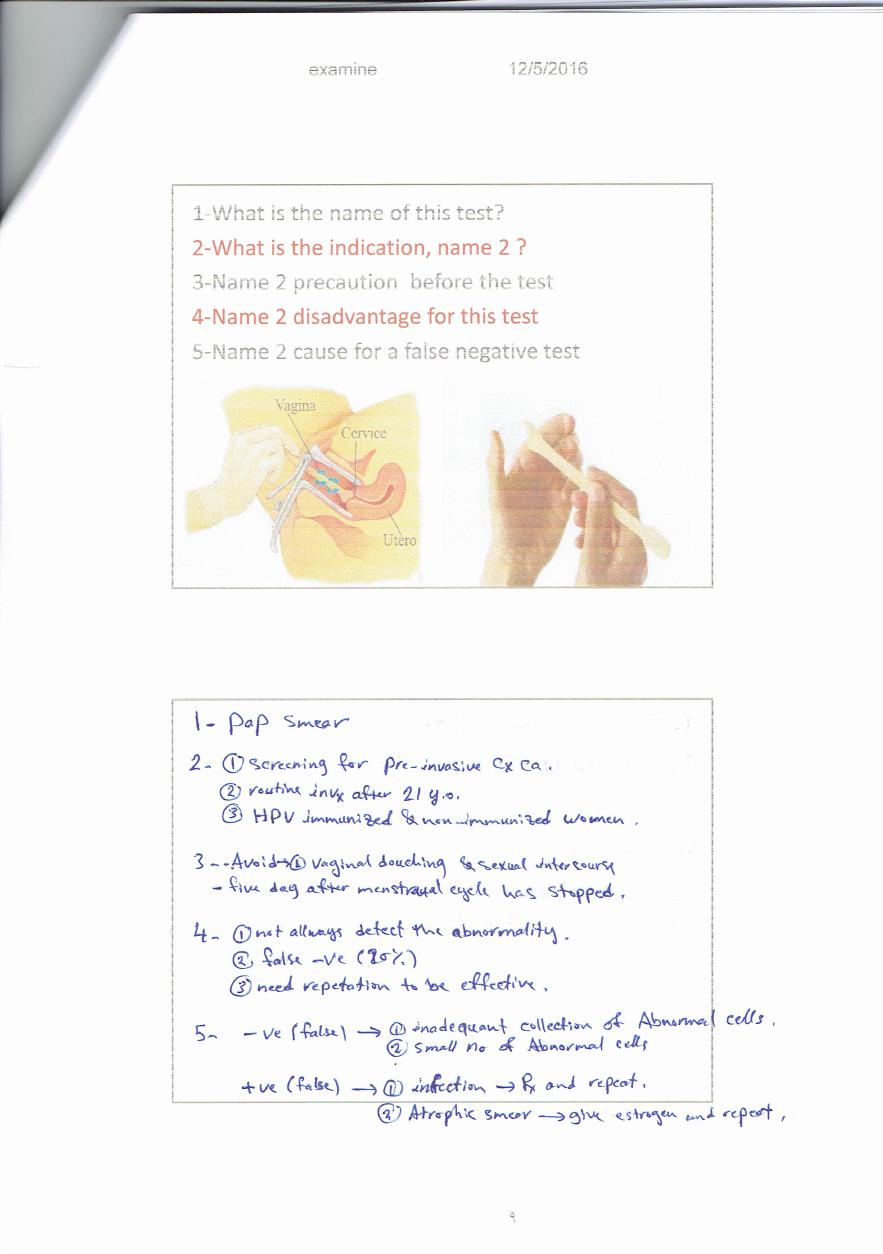 examine 12/5/2016
1-What is the name of this test?
2-What is the indication, name 2 ?
3-Name 2 precaution before the test
4-Name 2 disadvantage for this test
5-Name 2 cause for a false negative test
Vagina
Cervice
Utero
1- Pap smear
2- ① screening for pre-invasive Cx Ca.
② routine invx after 21 y.o.
③ HPV immunized & non-immunized women.
3--Avoid→① vaginal douching & sexual intercourse
- five day after menstraual cycle has stopped.
4- ① not allways detect the abnormality.
② false -ve (20%)
③ need repetation to be effective.
5- -ve (false) → ① inadequant collection of Abnormal cells.
② small no of Abnormal cells
+ve (false) → ① infection → Rx and repeat.
② Atrophic smear → give estrogen and repeat,
9